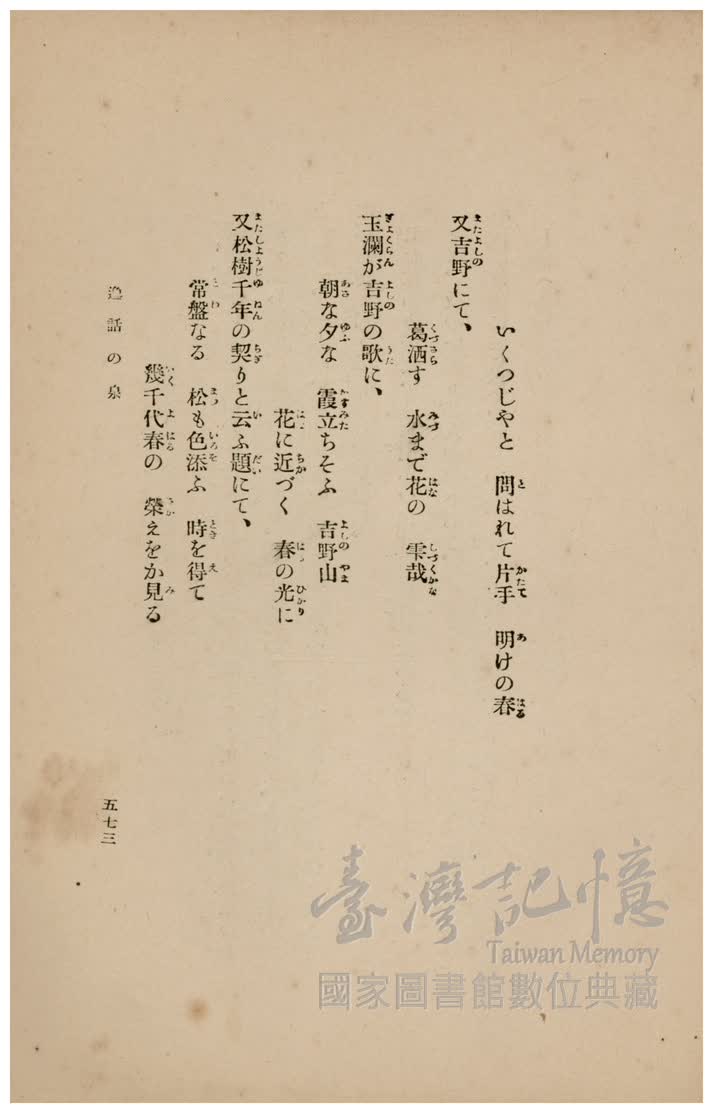 いくつじやと 問はれて片手 明けの春
又吉野にて、
葛洒す 水まで花の 雫哉
玉瀾が吉野の歌に、
朝な夕な 霞立ちそふ 吉野山
花に近づく 春の光に
又松樹千年の契りと云ふ題にて、
常盤なる 松も色添ふ 時を得て
幾千代春の 榮えをか見る
逸話の泉
五七三
臺灣記憶
Taiwan Memory
國家圖書館數位典藏